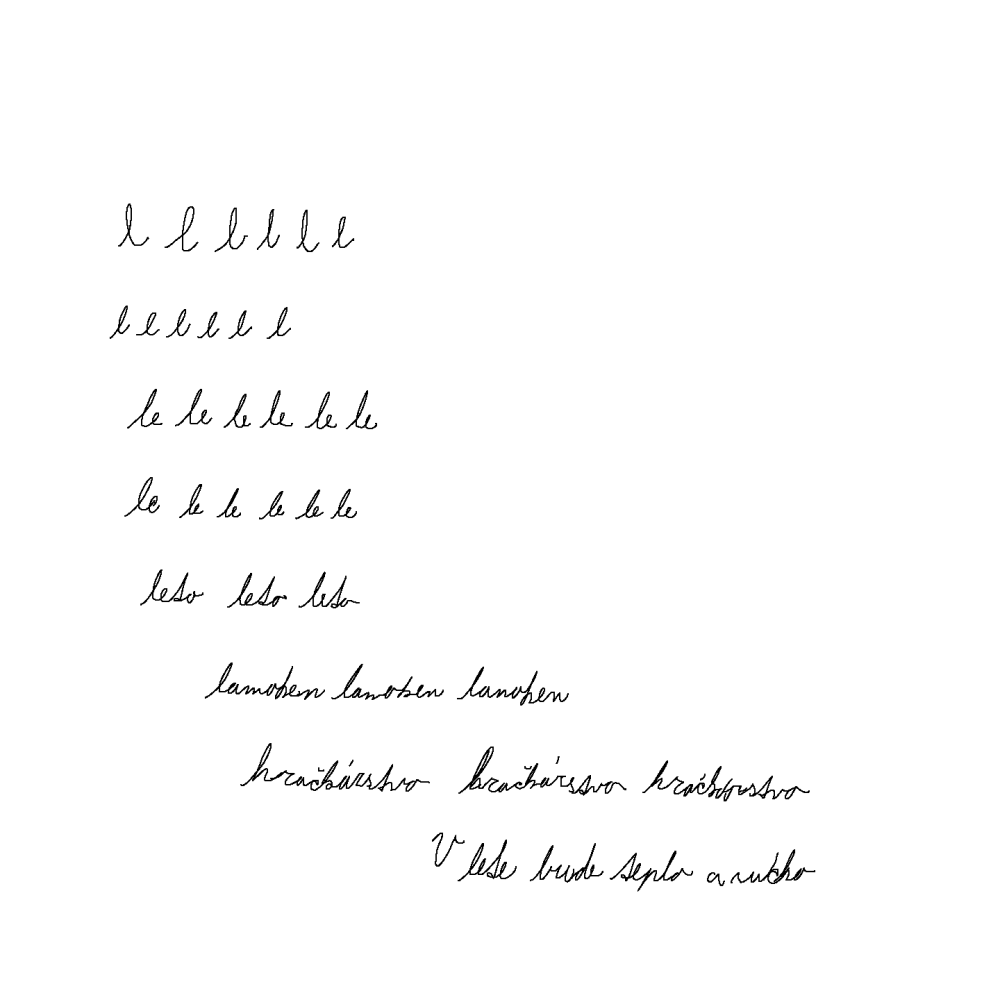 l l l l l l
l l l l l l
le le le le le le
le le le le le le
leto leto leto
lamohen lamohen lamohen
hračkárstvo hračkárstvo hračkárstvo
V lete bude teplo a ticho